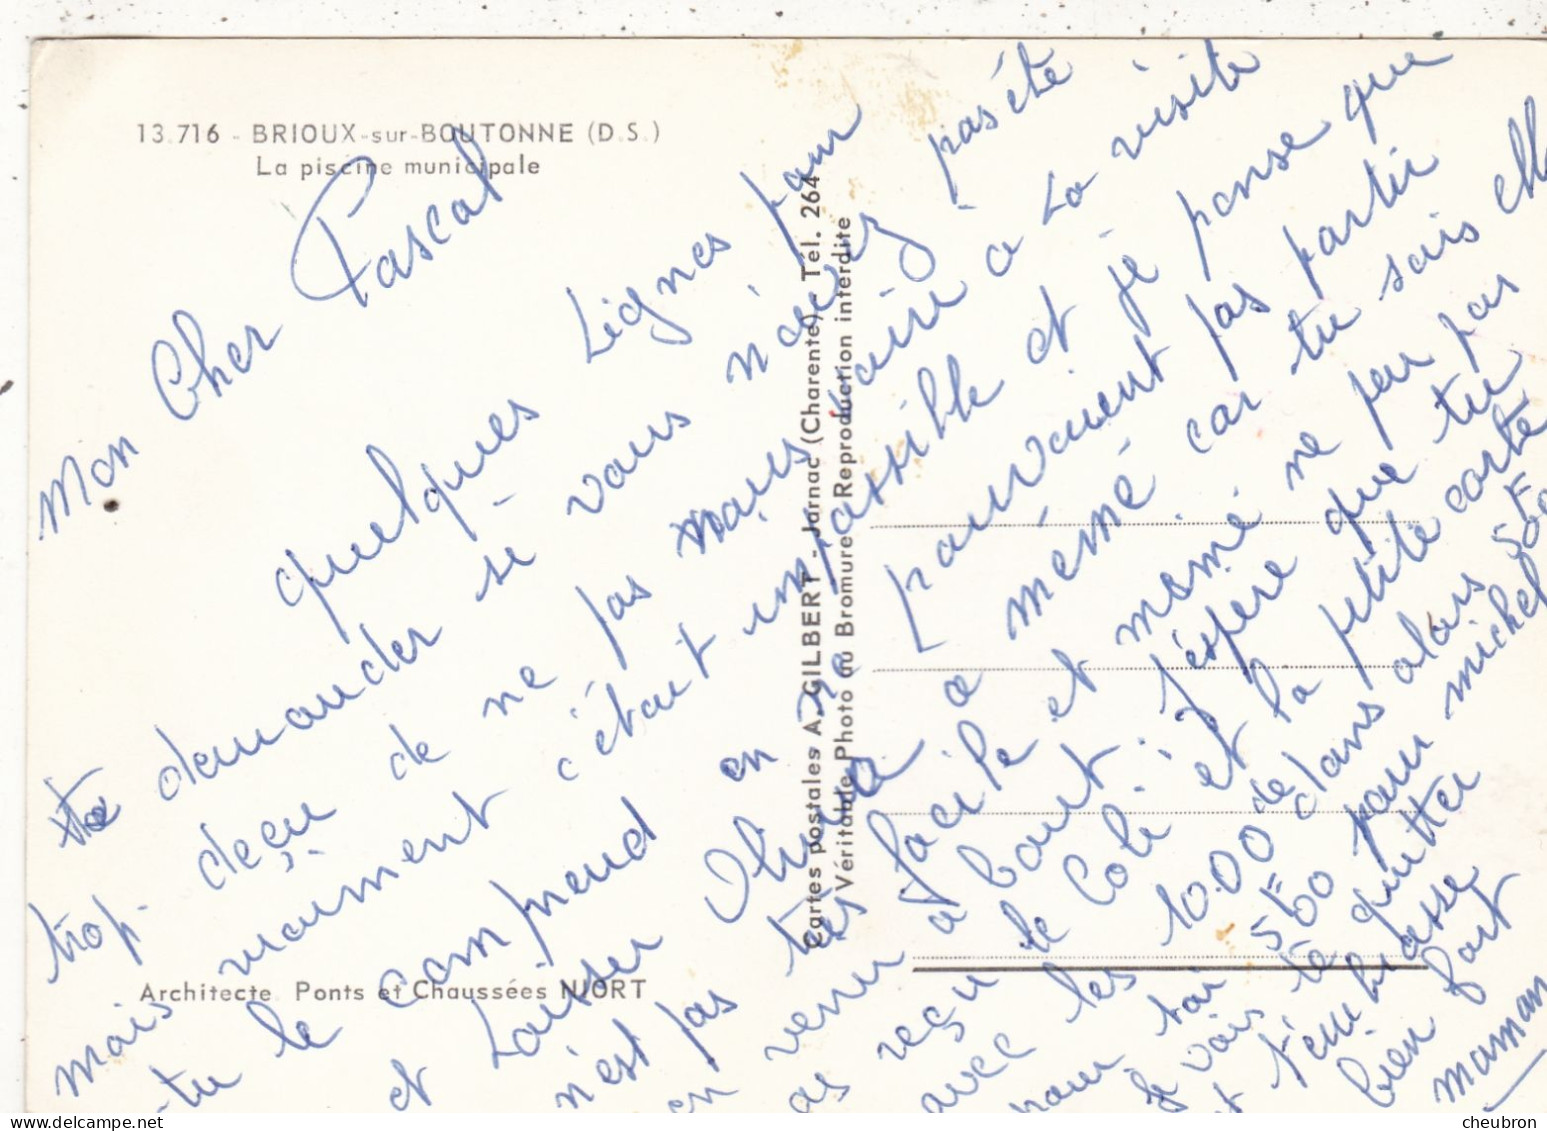 13.716 - BRIOUX-sur-BOUTONNE (D.S.)
La piscine municipale
Mon Cher Pascal
quelques Lignes pour
demander si vous n'avez pas été
trop deçu de ne pas nous voire a La visite
mais vraiment c'étant impossible et je pense que
tu le comprend en ne pouvaient pas partir
et Laiser Olivia a mémé car tu sais elle
n'est pas tres facile et mémé ne peu pas
en venir a bout. J'espere que tu
as reçu le Coli et la petite carte
avec les 10.00 de dans alors 5F00
pour toi 5F00 pour michel
Je vais te quitter
et t'embrasse
bien fort
maman
Cartes postales A. GILBERT - Jarnac (Charente) - Tél. 264
Véritable Photo au Bromure Reproduction interdite
Architecte Ponts et Chaussées NIORT
cheubron